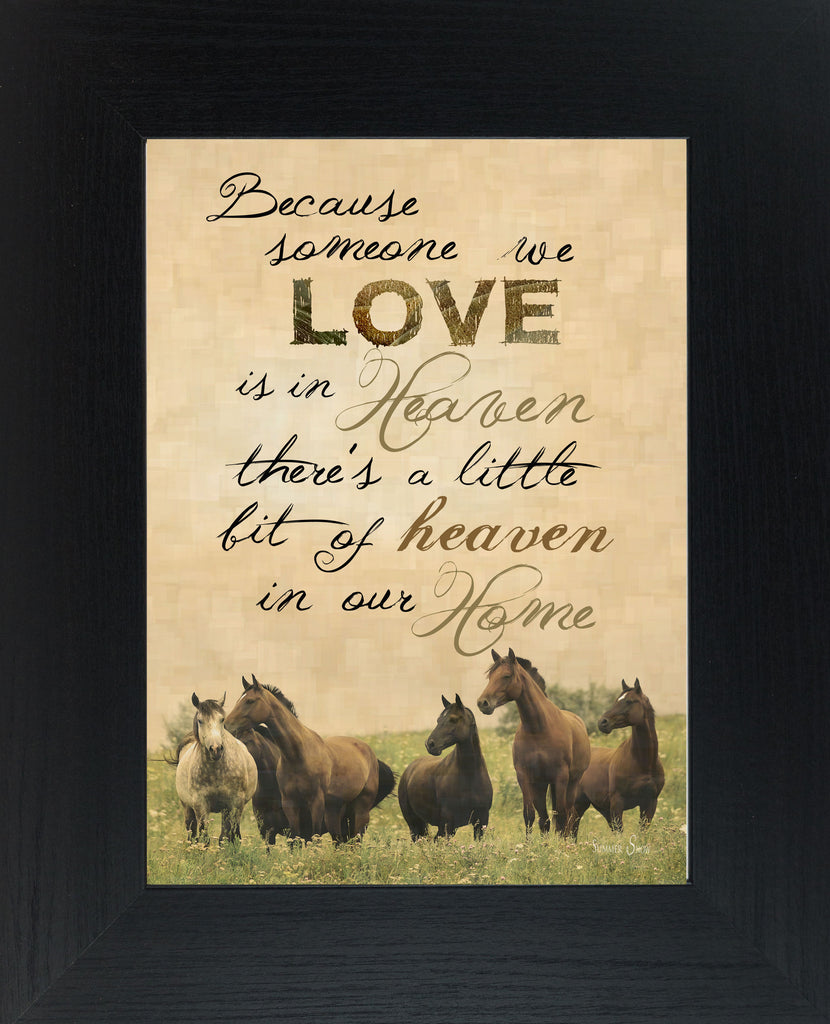 Because
someone we
LOVE
is in Heaven
there's a little
bit of heaven
in our Home
SUMMER SNOW